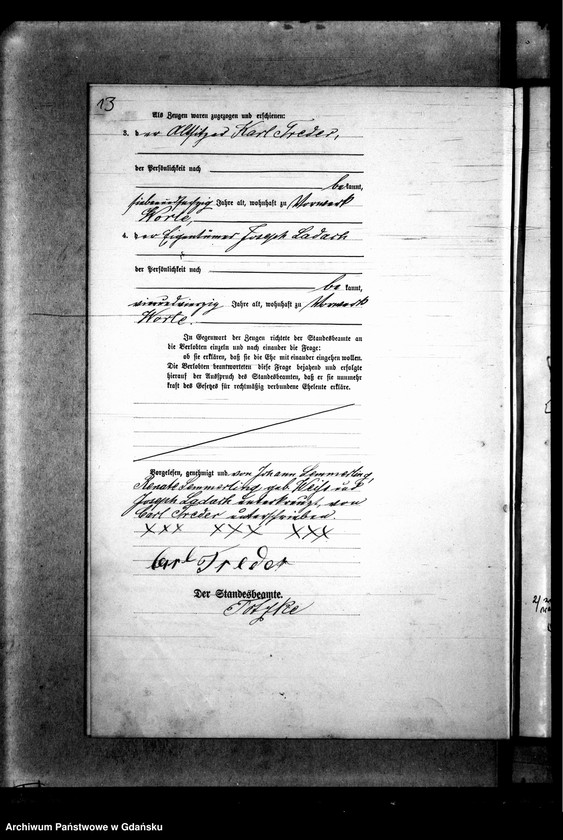 13
Als Zeugen waren zugezogen und erschienen:
3. der Altsitzer Karl Treder,
der Persönlichkeit nach
be kannt,
siebenundsechzig Jahre alt, wohnhaft zu Vorwerk
Worle,
4. der Eigentümer Joseph Ladach
der Persönlichkeit nach
be kannt,
vierundvierzig Jahre alt, wohnhaft zu Vorwerk
Worle.
In Gegenwart der Zeugen richtete der Standesbeamte an
die Verlobten einzeln und nach einander die Frage:
ob sie erklären, daß sie die Ehe mit einander eingehen wollen.
Die Verlobten beantworteten diese Frage bejahend und erfolgte
hierauf der Ausspruch des Standesbeamten, daß er sie nunmehr
kraft des Gesetzes für rechtmäßig verbundene Eheleute erkläre.
Vorgelesen, genehmigt und von Johann Lemmerling,
Renate Lemmerling geb. Weiß und
Joseph Ladach unterkreuzt, von
Carl Treder unterschrieben.
XXX XXX XXX
Carl Treder
Der Standesbeamte.
Totzke
Archiwum Państwowe w Gdańsku